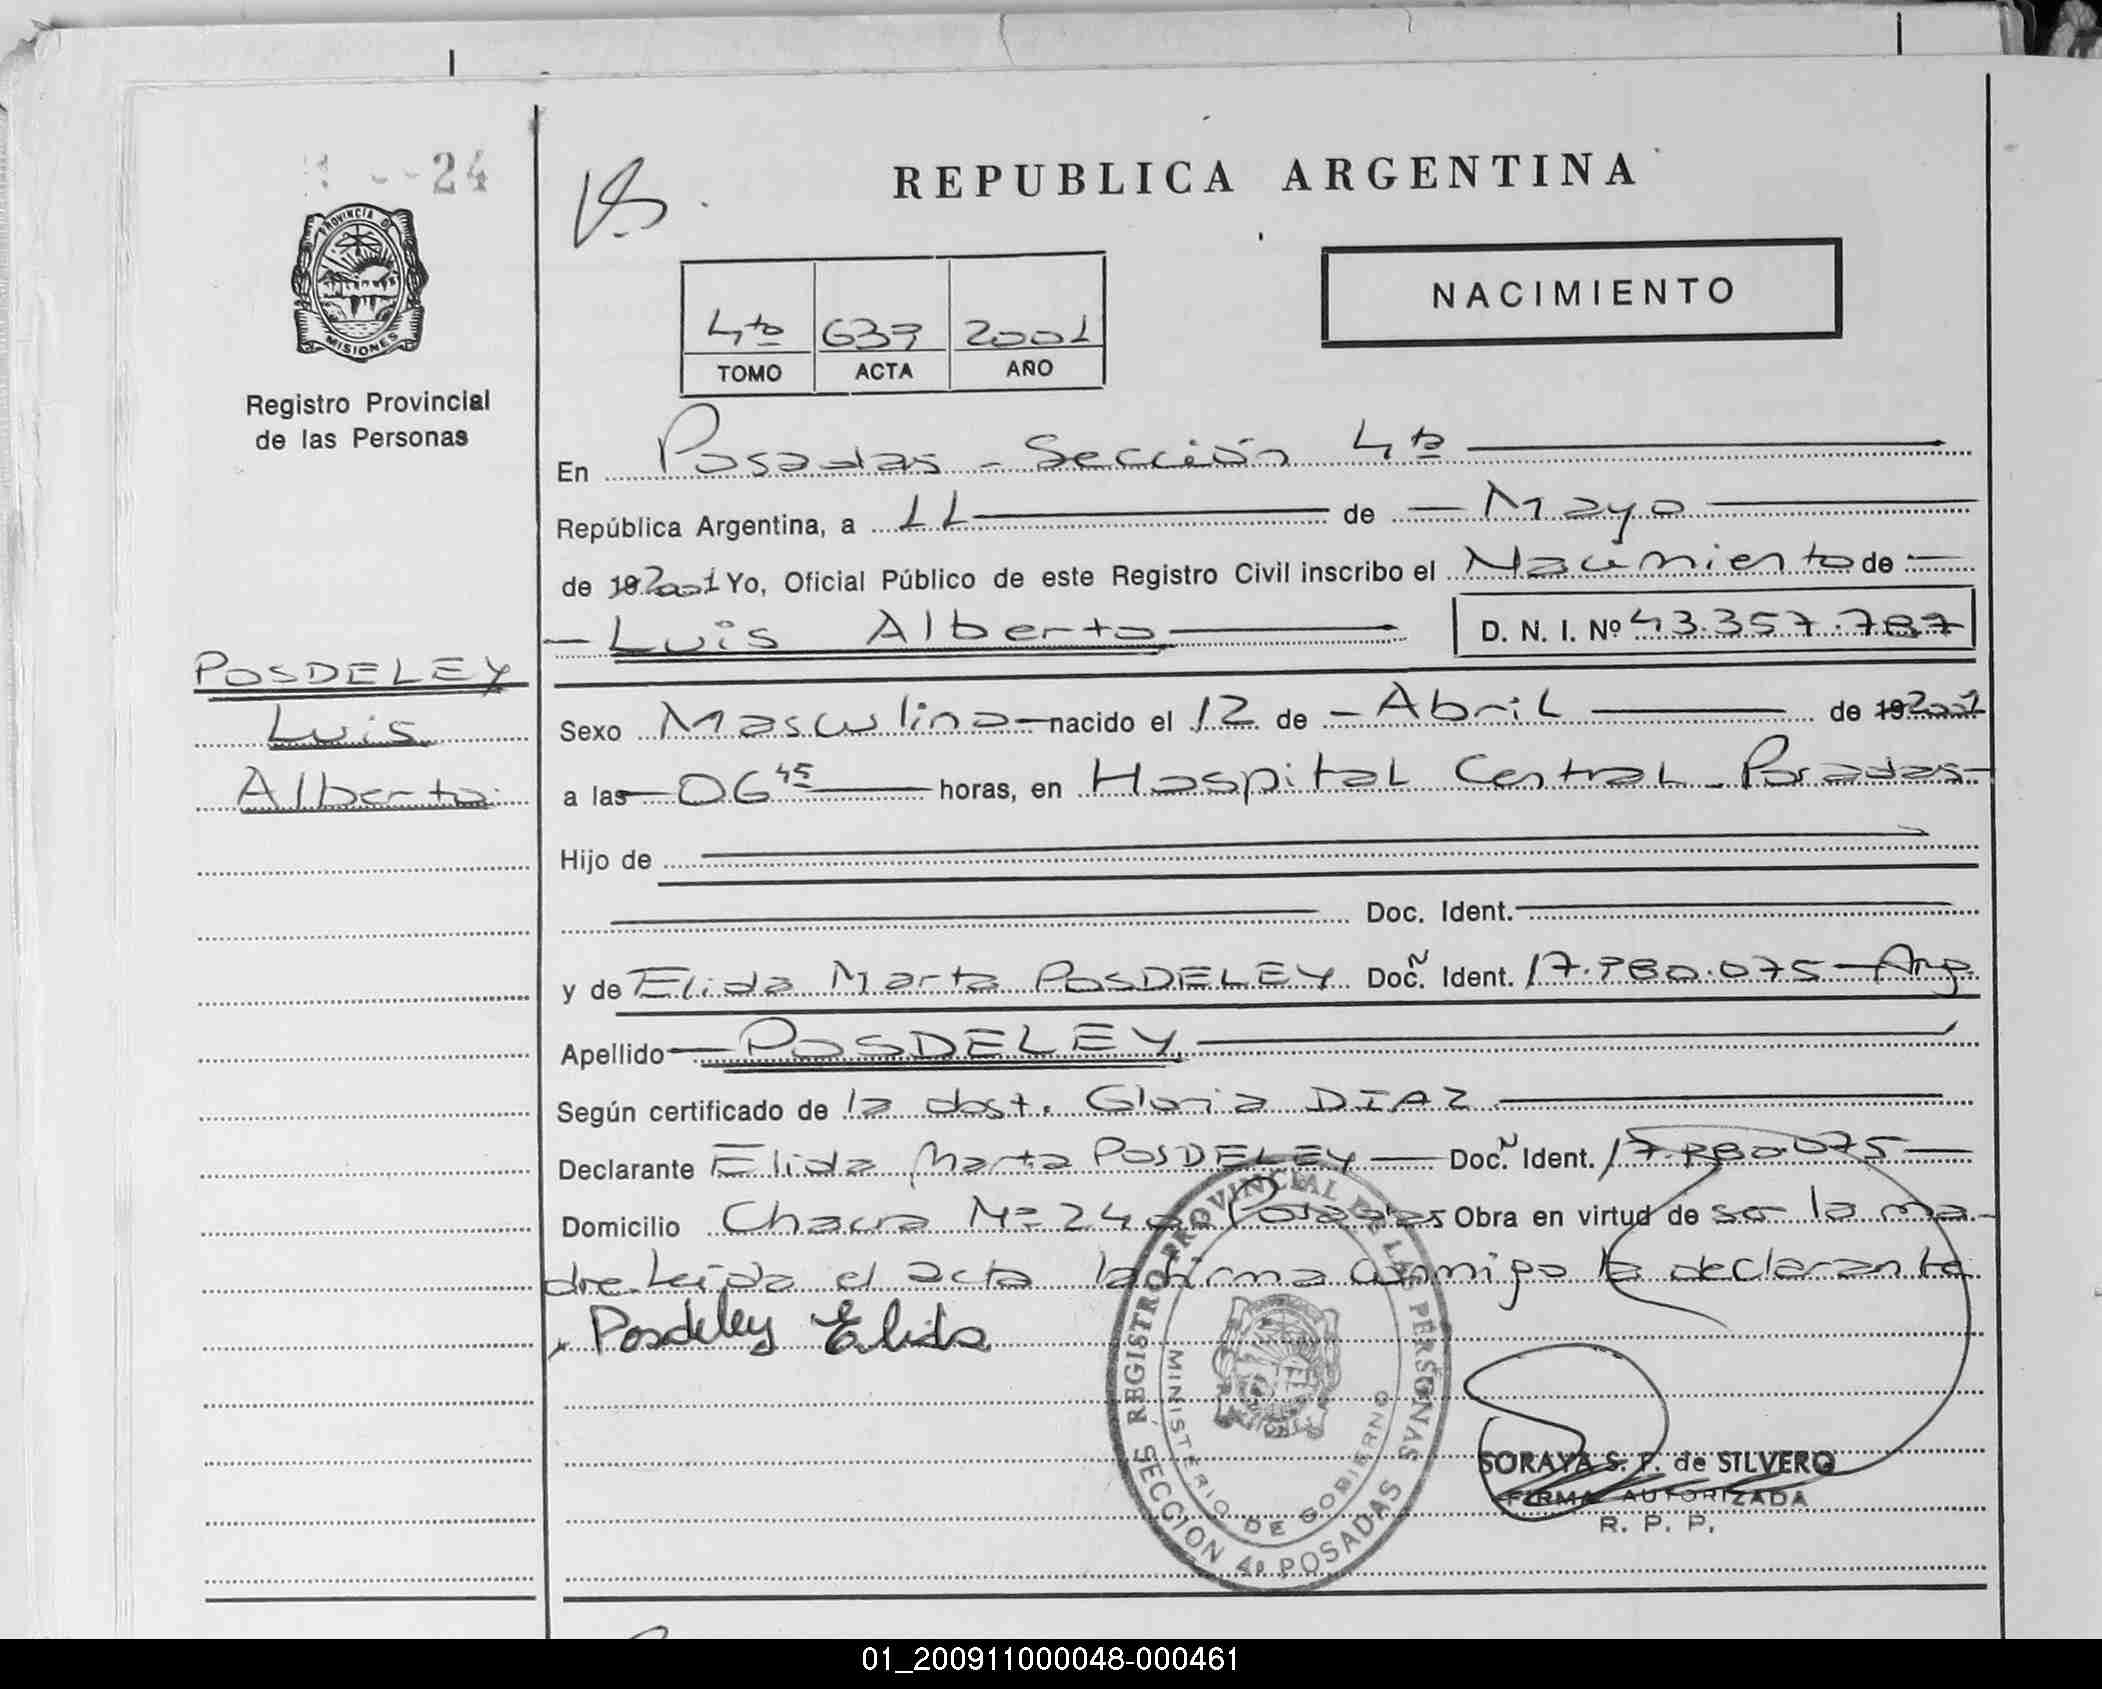 24
PROVINCIA DE
MISIONES
Registro Provincial
de las Personas
REPUBLICA ARGENTINA
NACIMIENTO
4to 637 2001
TOMO ACTA AÑO
En Posadas - Sección 4ta
República Argentina, a 11 de - Mayo
de 19 2001 Yo, Oficial Público de este Registro Civil inscribo el Nacimiento de -
- Luis Alberto D. N. I. Nº 43.357.787
POSDELEY
Luis
Alberto
Sexo Masculino - nacido el 12 de - Abril de 19 2001
a las 06 45 horas, en Hospital Central - Posadas -
Hijo de
Doc. Ident.
y de Elida Marta POSDELEY Doc. Ñ Ident. 17.980.075 - Arg.
Apellido - POSDELEY
Según certificado de la obst. Gloria DIAZ
Declarante Elida Marta POSDELEY - Doc. Ñ Ident. 17.980.075 -
Domicilio Chacra Nº 24 Posadas Obra en virtud de ser la ma-
dre. Leída el acta la firma conmigo la declarante
Posdeley Elida
REGISTRO PROVINCIAL DE LAS PERSONAS
MINISTERIO DE GOBIERNO
SECCION 4ª POSADAS
SORAYA S. F. de SILVERO
FIRMA AUTORIZADA
R. P. P.
01_200911000048-000461